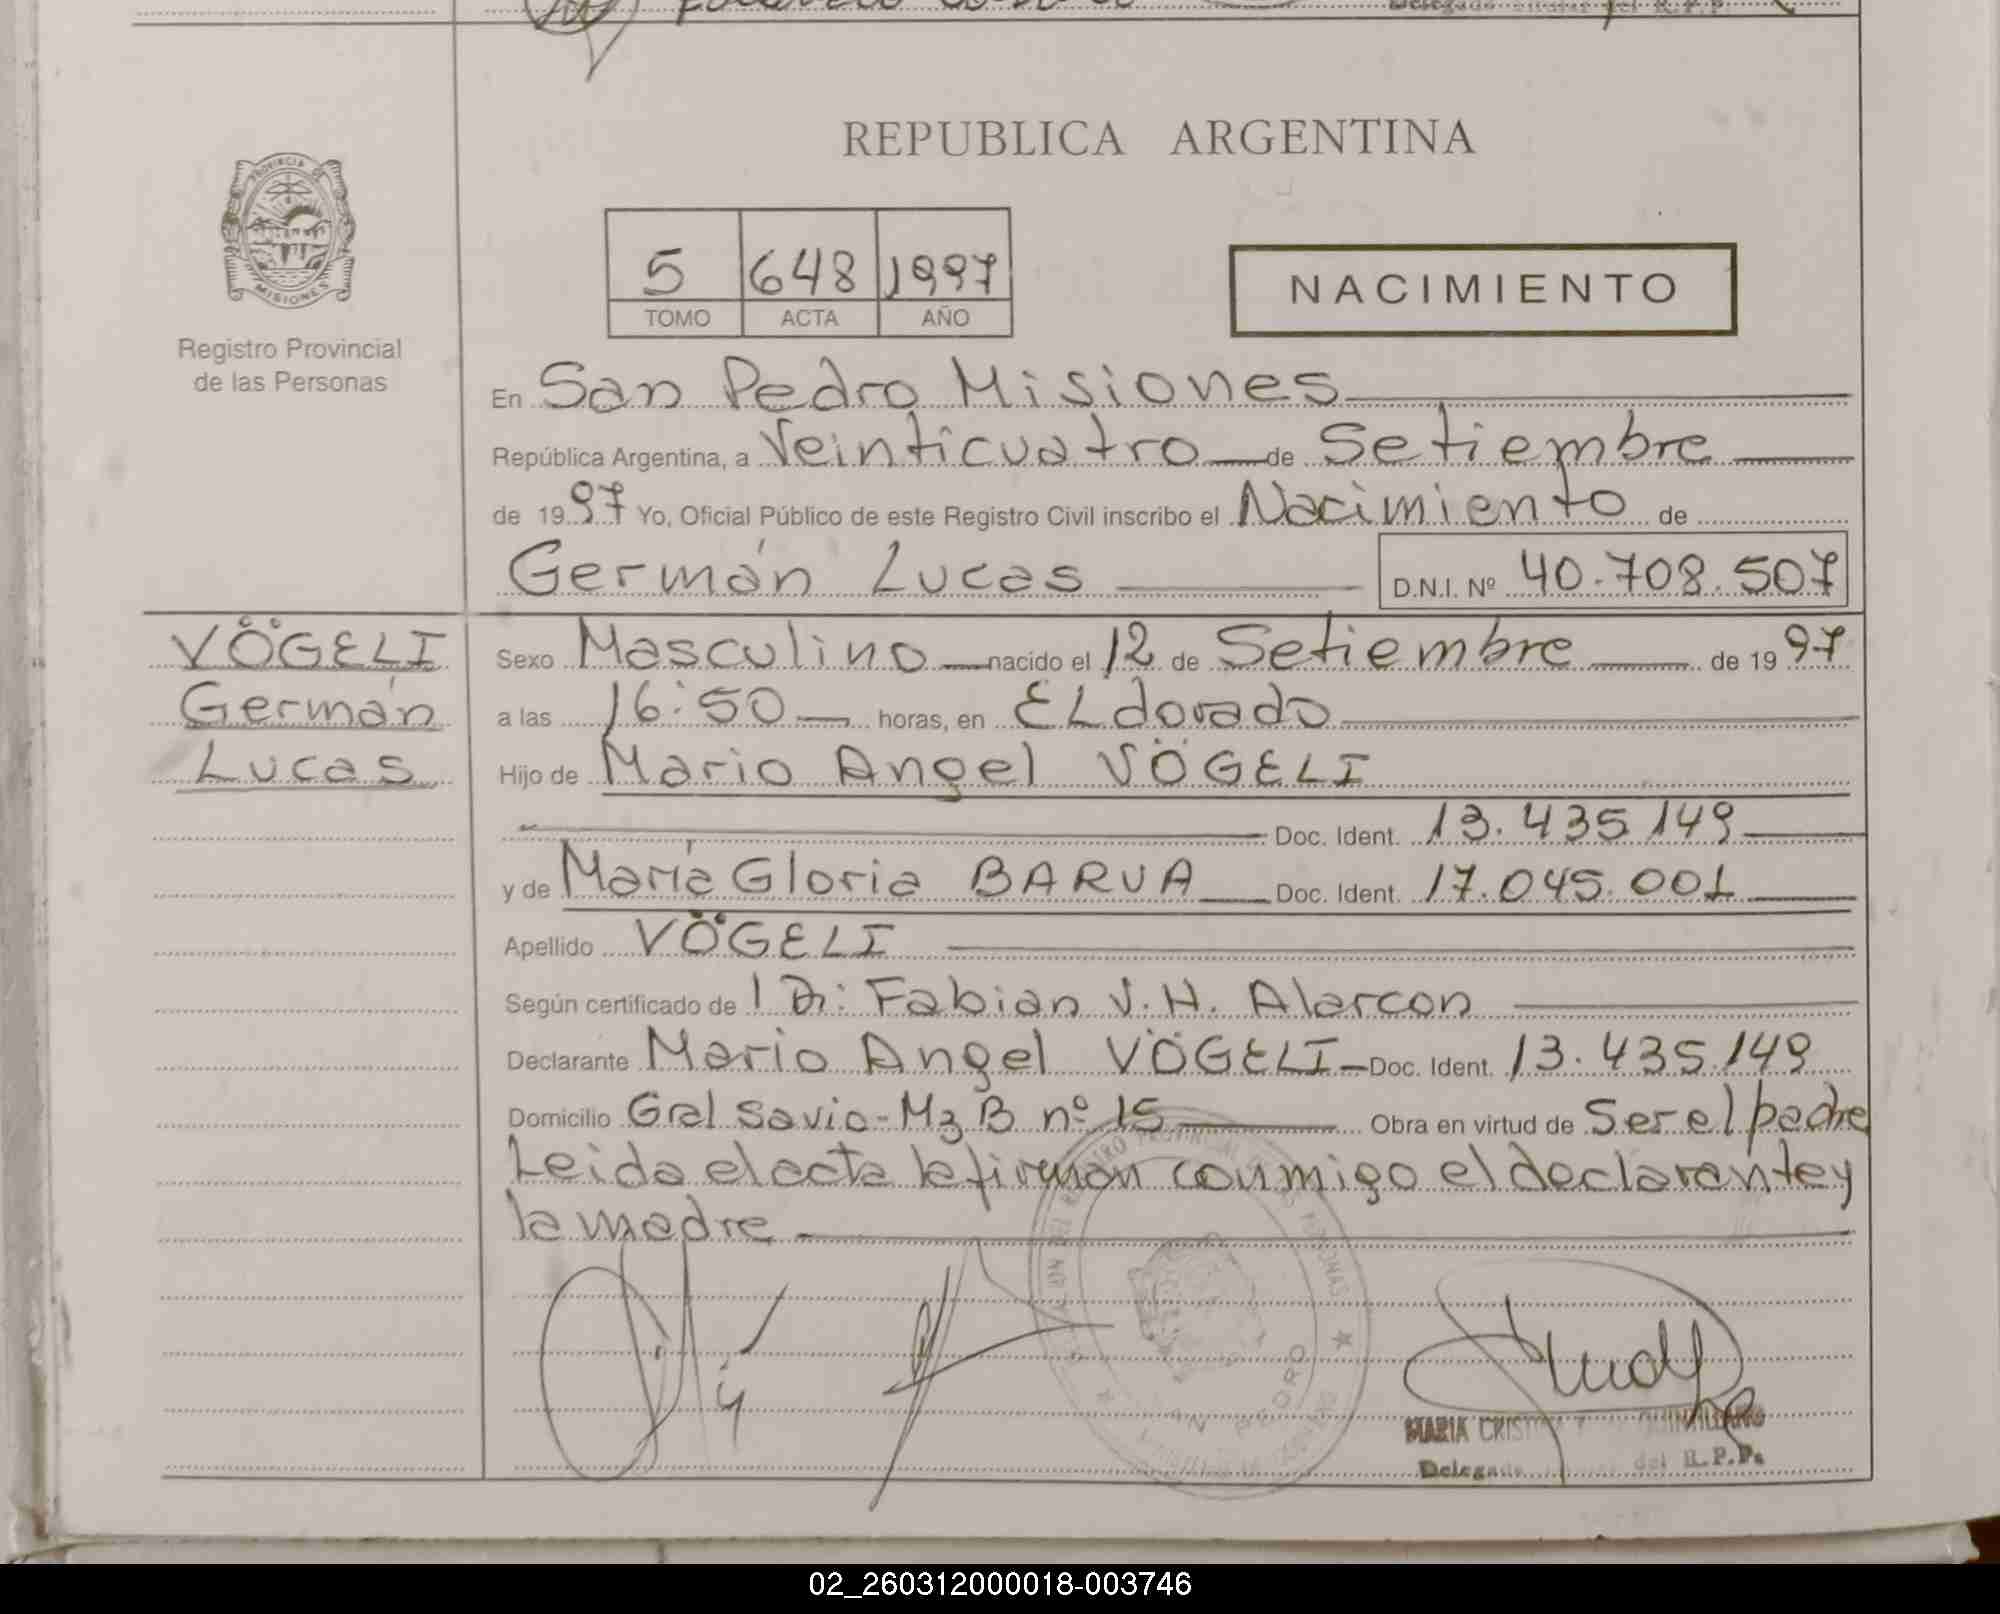 REPUBLICA ARGENTINA
PROVINCIA DE MISIONES
Registro Provincial
de las Personas
5 648 1997
TOMO ACTA AÑO
NACIMIENTO
En San Pedro Misiones
República Argentina, a Veinticuatro de Setiembre
de 1997 Yo, Oficial Público de este Registro Civil inscribo el Nacimiento de
Germán Lucas D.N.I. Nº 40.708.507
VÖGELI
Germán
Lucas
Sexo Masculino nacido el 12 de Setiembre de 1997
a las 16:50 horas, en ELdorado
Hijo de Mario Angel VÖGELI
Doc. Ident. 13.435.149
y de María Gloria BARUA Doc. Ident. 17.045.001
Apellido VÖGELI
Según certificado de Dr: Fabian V.H. Alarcon
Declarante Mario Angel VÖGELI Doc. Ident. 13.435.149
Domicilio Gral Savio - Mz B nº 15 Obra en virtud de Ser el padre
Leida el acta la firman conmigo el declarante y
la madre
SAN PEDRO
MARIA CRISTINA
del R.P.P.
02_260312000018-003746